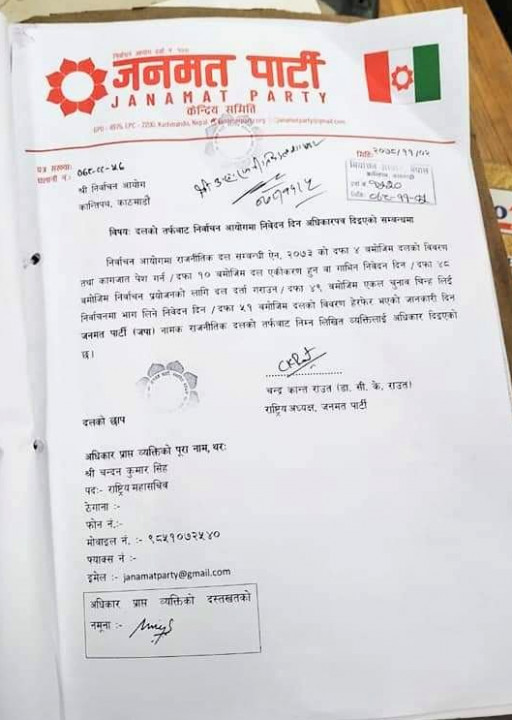 जनमत पार्टी
JANAMAT PARTY
केन्द्रिय समिति
मितिः २०७८/११/०२
श्री निर्वाचन आयोग
कान्तिपथ, काठमाडौं
विषयः दलको तर्फबाट निर्वाचन आयोगमा निवेदन दिन अधिकारपत्र दिइएको सम्बन्धमा
निर्वाचन आयोगमा राजनीतिक दल सम्बन्धी ऐन, २०७३ को दफा ४ बमोजिम दलको विवरण
तथा कागजात पेश गर्न / दफा १० बमोजिम दल एकीकरण हुन वा गाभिन निवेदन दिन / दफा ४८
बमोजिम निर्वाचन प्रयोजनको लागि दल दर्ता गराउन / दफा ४९ बमोजिम एकल चुनाव चिन्ह लिई
निर्वाचनमा भाग लिने निवेदन दिन / दफा ५१ बमोजिम दलको विवरण हेरफेर भएको जानकारी दिन
जनमत पार्टी (जपा) नामक राजनीतिक दलको तर्फबाट निम्न लिखित व्यक्तिलाई अधिकार दिइएको
छ।
चन्द्र कान्त राउत (डा. सी. के. राउत)
राष्ट्रिय अध्यक्ष, जनमत पार्टी
दलको छाप
अधिकार प्राप्त व्यक्तिको पूरा नाम, थरः
श्री चन्दन कुमार सिंह
पदः- राष्ट्रिय महासचिव
ठेगाना :-
फोन नं.:-
मोबाइल नं. :- ९८५१०७२५४०
फ्याक्स नं :-
इमेल :- janamatparty@gmail.com
अधिकार प्राप्त व्यक्तिको दस्तखतको
नमूना :-